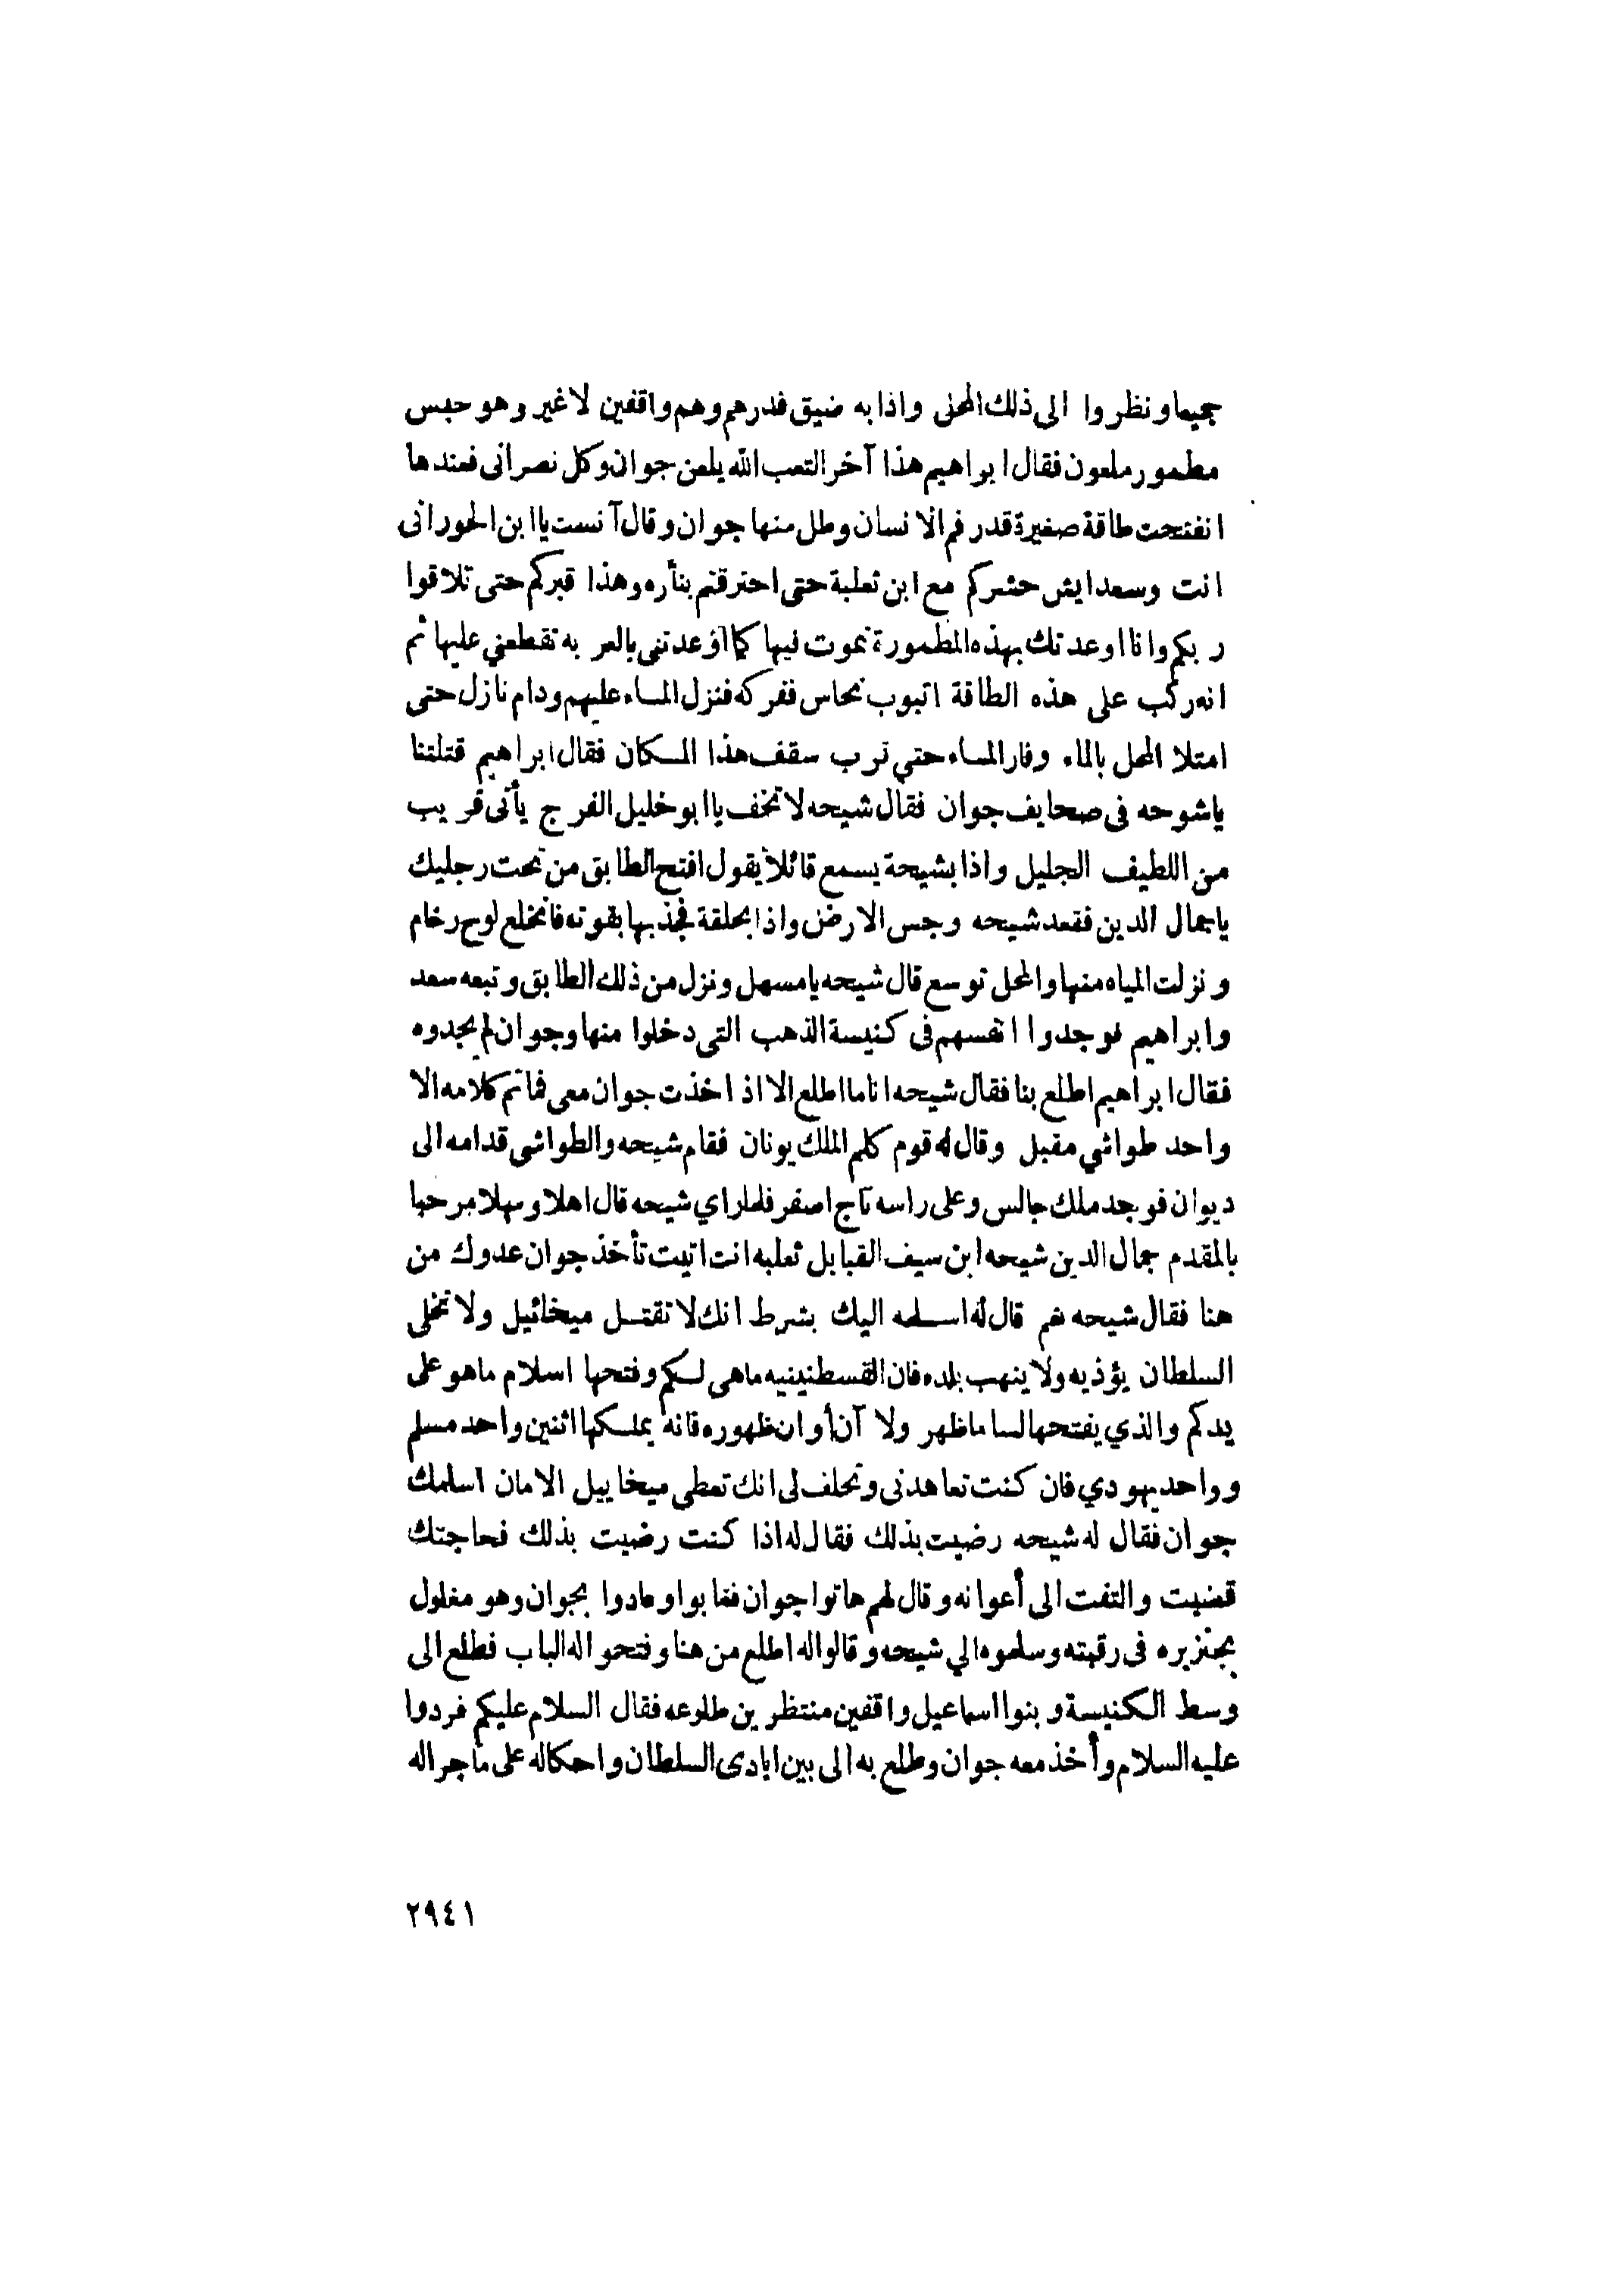 جميعا ونظروا الى ذلك المحل واذا به ضيق قدرهم وهم واقفين لا غير وهو حبس
مطمور ملعون فقال ابراهيم هذا آخر التعب الله يلعن جوان وكل نصرانى فعندها
انفتحت طاقة صغيرة قدر فم الانسان وطل منها جوان وقال آنست يا ابن الحورانى
انت وسعد ايش حشركم مع ابن ثعلبة حتى احترقتم بناره وهذا قبركم حتى تلاقوا
ربكم وانا اوعدتك بهذه المطمورة تموت فيها كما اوعدتنى بالعربه تقطعني عليها ثم
انه ركب على هذه الطاقة انبوب نحاس ففركه فنزل الماء عليهم ودام نازل حتى
امتلا المحل بالماء وفار الماء حتي قرب سقف هذا المكان فقال ابراهيم قتلتنا
ياشوحه فى صحايف جوان فقال شيحه لا تخف يا ابو خليل الفرج يأتى قريب
من اللطيف الجليل واذا بشيحة يسمع قائلا يقول افتح الطابق من تحت رجليك
ياجمال الدين فقعد شيحه وجس الارض واذا بحلقة فجذبها بقوته فانخلع لوح رخام
ونزلت المياه منها والمحل توسع قال شيحه يامسهل ونزل من ذلك الطابق وتبعه سعد
وابراهيم فوجدوا انفسهم فى كنيسة الذهب التى دخلوا منها وجوان لم يجدوه
فقال ابراهيم اطلع بنا فقال شيحه انا ما اطلع الا اذ اخذت جوان معى فما تم كلامه الا
واحد طواشي مقبل وقال له قوم كلم الملك يونان فقام شيحه والطواشى قدامه الى
ديوان فوجد ملك جالس وعلى راسه تاج اصفر فلما راي شيحه قال اهلا وسهلا مرحبا
بالمقدم جمال الدين شيحه ابن سيف القبايل ثعلبه انت اتيت تأخذ جوان عدوك من
هنا فقال شيحه نعم قال له اسلمه اليك بشرط انك لا تقتل ميخائيل ولا تخلى
السلطان يؤذيه ولا ينهب بلده فان القسطنينيه ماهى لكم وفتحها اسلام ماهو على
يدكم والذي يفتحها لسا ماظهر ولا آن أوان ظهوره فانه يملكها اثنين واحد مسلم
وواحد يهودي فان كنت تعاهدنى وتحلف لى انك تعطى ميخاييل الامان اسلمك
جوان فقال له شيحه رضيت بذلك فقال له اذا كنت رضيت بذلك فحاجتك
قضيت والتفت الى أعوانه وقال لهم هاتوا جوان فغابوا وعادوا بجوان وهو مغلول
بجنزيره فى رقبته وسلموه الي شيحه وقالواله اطلع من هنا وفتحواله الباب فطلع الى
وسط الكنيسة وبنوا اسماعيل واقفين منتظرين طلوعه فقال السلام عليكم فردوا
عليه السلام وأخذ معه جوان وطلع به الى بين ايادى السلطان واحكاله على ماجراله
٢٩٤١